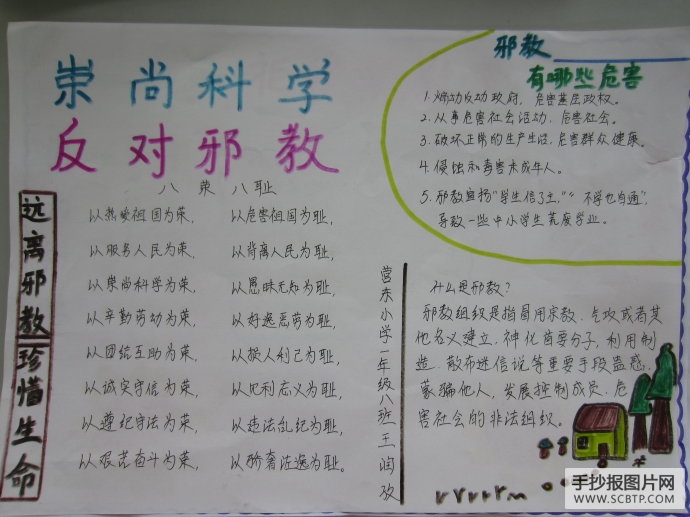 崇尚科学
反对邪教
八荣八耻
以热爱祖国为荣，以危害祖国为耻，
以服务人民为荣，以背离人民为耻，
以崇尚科学为荣，以愚昧无知为耻，
以辛勤劳动为荣，以好逸恶劳为耻，
以团结互助为荣，以损人利己为耻，
以诚实守信为荣，以见利忘义为耻，
以遵纪守法为荣，以违法乱纪为耻，
以艰苦奋斗为荣，以骄奢淫逸为耻。
远离邪教珍惜生命
邪教
有哪些危害
1. 煽动反动政府，危害基层政权。
2. 从事危害社会活动，危害社会。
3. 破坏正常的生产生活，危害群众健康。
4. 侵蚀和毒害未成年人。
5. 邪教宣扬“学生信了主，”“不学也自通”，
导致一些中小学生荒废学业。
营东小学一年级八班王润孜
什么是邪教？
邪教组织是指冒用宗教、气功或者其
他名义建立，神化首要分子，利用制
造、散布迷信说等重要手段蛊惑、
蒙骗他人，发展控制成员、危
害社会的非法组织。
手抄报图片网
WWW.SCBTP.COM